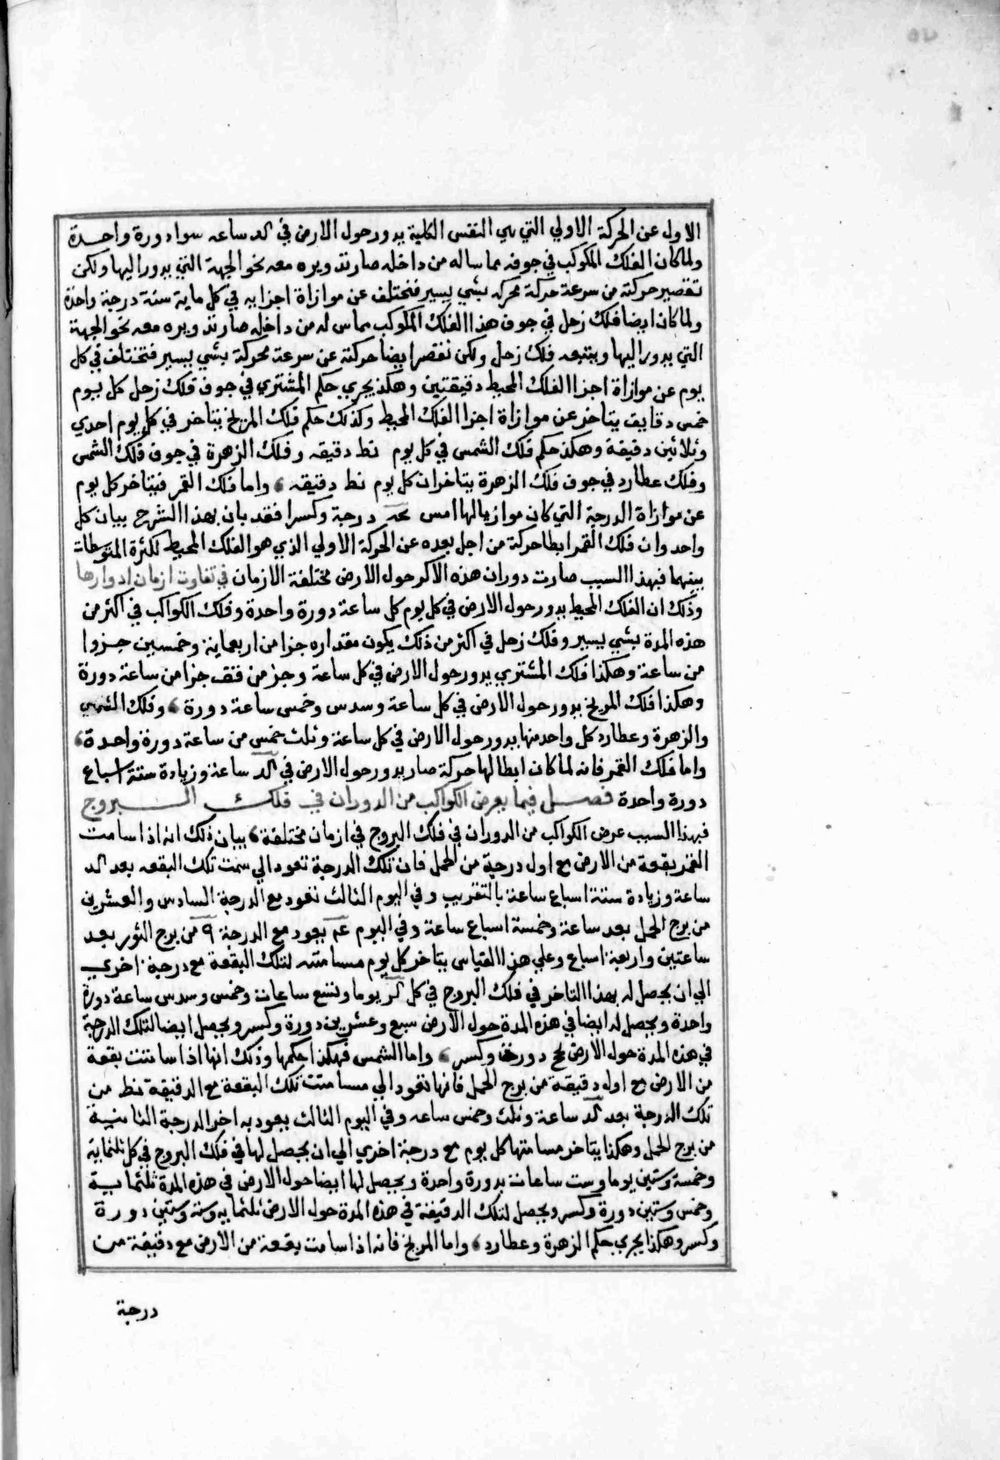 الاول عن الحركة الاولي التي هي النفس الكلية يدور حول الارض في كد ساعه سوا دورة واحدة
ولما كان الفلك المكوكب في جوفه مماساله من داخله صار تدويره معه نحو الجهة التي يدور اليها ولكن
تقصير حركته من سرعة حركة محركه بشي يسير فتختلف عن موازاة اجزايه في كل ماية سنة درجة واحدة
ولما كان ايضا فلك زحل في جوف هذا الفلك المكوكب مماس له من داخله صار تدويره معه نحو الجهة
التي يدور اليها ويتبعه فلك زحل ولكن تقصر ايضا حركته عن سرعة محركة بشي يسير فتختلف في كل
يوم عن موازاة اجزا الفلك المحيط دقيقتين وهكذ يجري حكم المشتري في جوف فلك زحل كل يوم
خمس دقايق يتاخر عن موازاة اجزا الفلك المحيط وكذلك حكم فلك المريخ يتاخر في كل يوم احدي
وثلاثين دقيقة وهكذ حكم فلك الشمس في كل يوم نط دقيقه وفلك الزهرة في جوف فلك الشمس
وفلك عطارد في جوف فلك الزهرة يتاخران كل يوم نط دقيقه واما فلك القمر فيتاخر كل يوم
عن موازاة الدرجة التي كان موازيا لها امس درجة وكسرا فقد بان بهذا الشرح بيان كل
واحد وان فلك القمر ابطا حركة من اجل بعده عن الحركة الاولي الذي هو الفلك المحيط لكثرة المتوسطات
بينهما فبهذا السبب صارت دوران هذه الاكر حول الارض مختلفة الازمان في تفاوت ازمان ادوارها
وذلك ان الفلك المحيط يدور حول الارض في كل يوم كل ساعة دورة واحدة وفلك الكواكب في اكثر من
هذه المدة بشي يسير وفلك زحل في اكثر من ذلك يكون مقداره جزا من اربعماية وخمسين جزوا
من ساعة وهكذا فلك المشتري يدور حول الارض في كل ساعة وجز من قف جزا من ساعة دورة
وهكذا فلك المريخ يدور حول الارض في كل ساعة وسدس وخمس ساعة دورة وفلك الشمس
والزهرة وعطارد كل واحد منها يدور حول الارض في كل ساعة وثلث خمس من ساعة دورة واحدة
واما فلك القمر فانه لما كان ابطالها حركة صار يدور حول الارض في كد ساعة وزيادة ستة اسباع
دورة واحدة فصل فيما يعرض الكواكب من الدوران في فلك البروج
فبهذا السبب عرض الكواكب من الدوران في فلك البروج في ازمان مختلفة بيان ذلك انه اذا سامت
القمر بقعة من الارض مع اول درجة من الحمل فان تلك الدرجة تعود الي سمت تلك البقعه بعد كد
ساعة وزيادة ستة اسباع ساعة بالتقريب وفي اليوم الثالث تعود مع الدرجة السادس والعشرين
من برج الحمل بعد ساعة وخمسة اسباع ساعة وفي اليوم يعود مع الدرجة ٩ من برج الثور بعد
ساعتين واربعة اسباع وعلي هذا القياس يتاخر كل يوم مسامتته لتلك البقعة مع درجة اخري
الي ان يحصل له بهذا التاخر في فلك البروج في كل كز يوما وتسع ساعات وخمس وسدس ساعة دورة
واحدة ويحصل له ايضا في هذه المدة حول الارض سبع وعشرين دورة وكسر ويحصل ايضا لتلك الدرجة
في هذه المدة حول الارض كح دورة وكسر واما الشمس فهكذا حكمها وذلك انها اذا سامتت بقعة
من الارض مع اول دقيقة من برج الحمل فانها تعود الي مسامتت تلك البقعة مع الدقيقة نط من
تلك الدرجة بعد كد ساعة وثلث وخمس ساعه وفي اليوم الثالث يعود به اخر الدرجة الثانية
من برج الحمل وهكذا يتاخر مسامتتها كل يوم مع درجة اخري الي ان يحصل لها في فلك البروج في كل ثلثماية
وخمسة وستين يوما وست ساعات بدورة واحدة ويحصل لها ايضا حول الارض في هذه المدة ثلثماية
وخمس وستين دورة وكسر ويحصل لتلك الدقيقة في هذه المدة حول الارض ثلثمايه وستة وستين دورة
وكسر وهكذا يجري حكم الزهرة وعطارد واما المريخ فانه اذا سامت بقعة من الارض مع دقيقة من
درجة